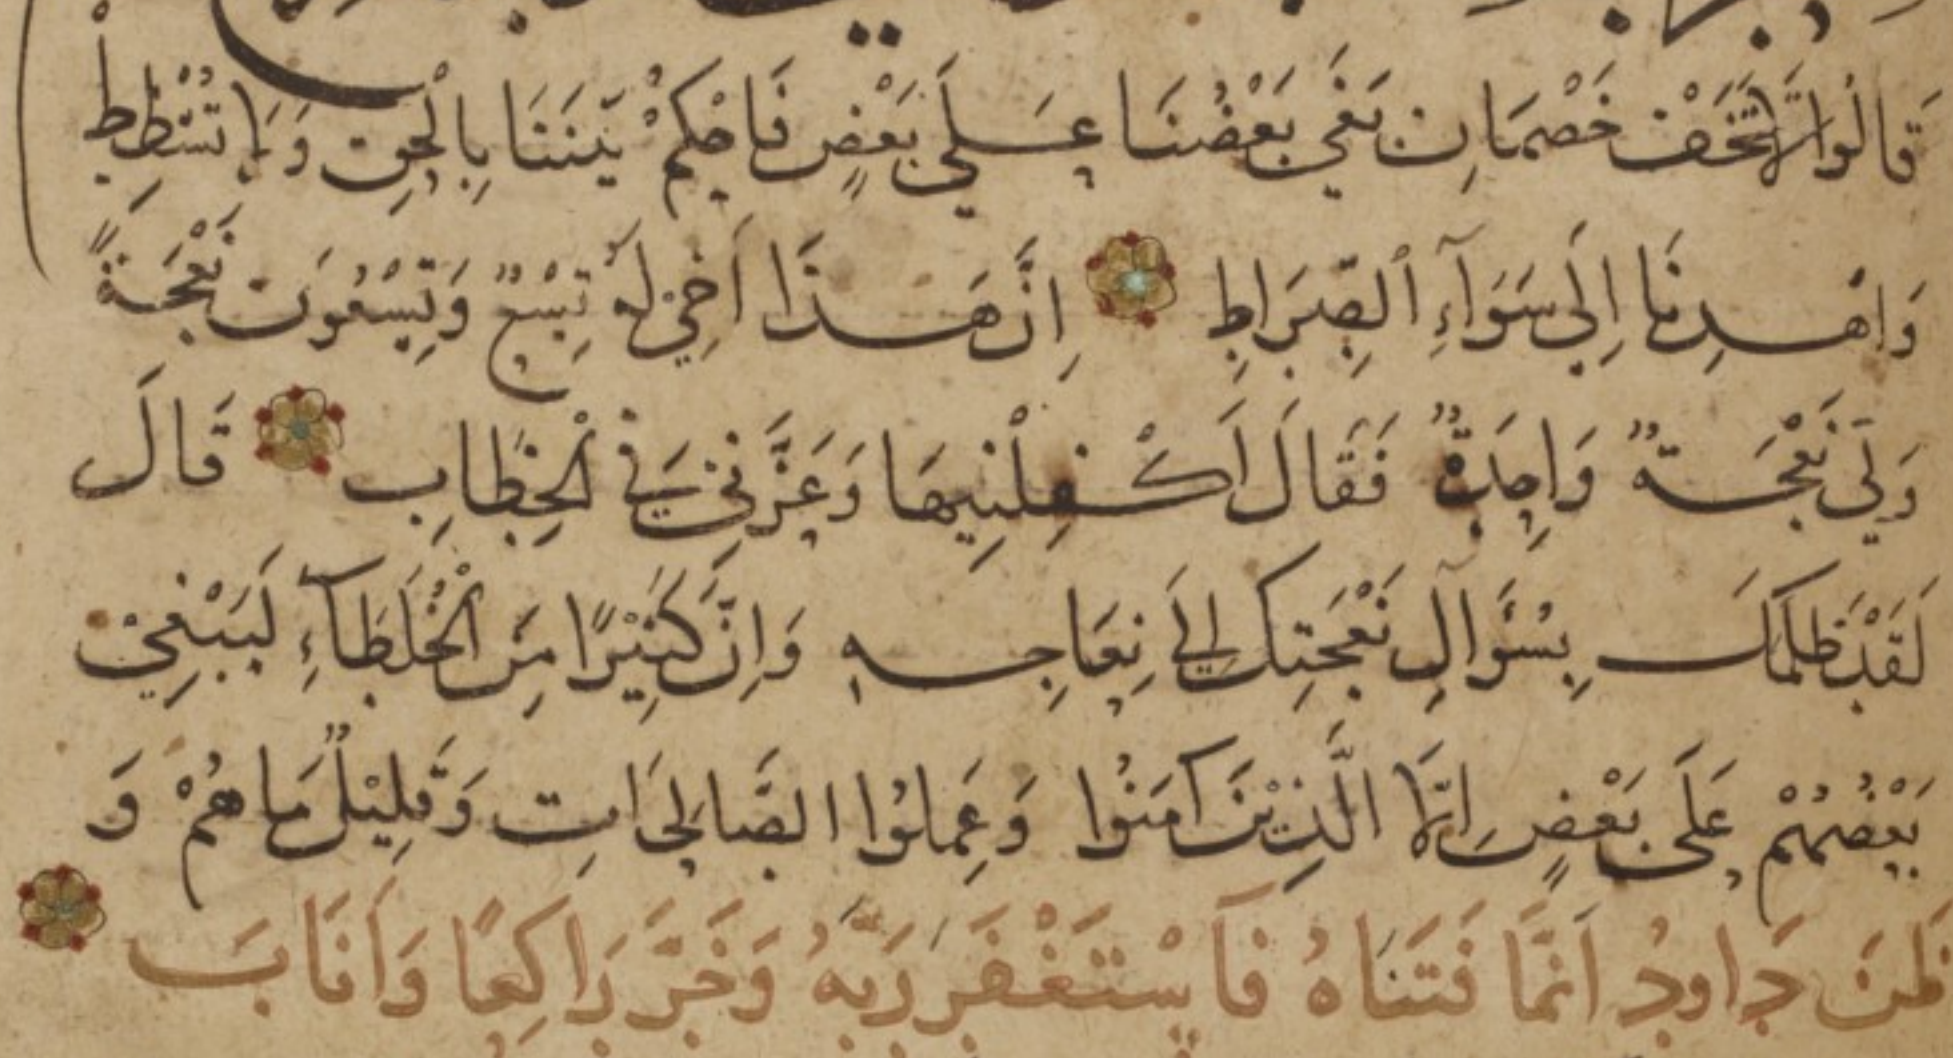 قَالُوا لَا تَخَفْ خَصْمَانِ بَغَى بَعْضُنَا عَلَى بَعْضٍ فَاحْكُمْ بَيْنَنَا بِالْحَقِّ وَلَا تُشْطِطْ
وَاهْدِنَا إِلَى سَوَآءِ الصِّرَاطِ اِنَّ هَذَا اَخِيْ لَهُ تِسْعٌ وَتِسْعُونَ نَعْجَةً
وَلِيَ نَعْجَةٌ وَاحِدَةٌ فَقَالَ اَكْفِلْنِيهَا وَعَزَّنِيْ فِي الْخِطَابِ قَالَ
لَقَدْ ظَلَمَكَ بِسُؤَالِ نَعْجَتِكَ اِلَى نِعَاجِهِ وَاِنَّ كَثِيْرًا مِنَ الْخُلَطَآءِ لَيَبْغِيْ
بَعْضُهُمْ عَلَى بَعْضٍ اِلَّا الَّذِيْنَ آمَنُوا وَعَمِلُوا الصَّالِحَاتِ وَقَلِيْلٌ مَا هُمْ وَ
ظَنَّ دَاودُ اَنَّمَا فَتَنَّاهُ فَاسْتَغْفَرَ رَبَّهُ وَخَرَّ رَاكِعًا وَاَنَابَ